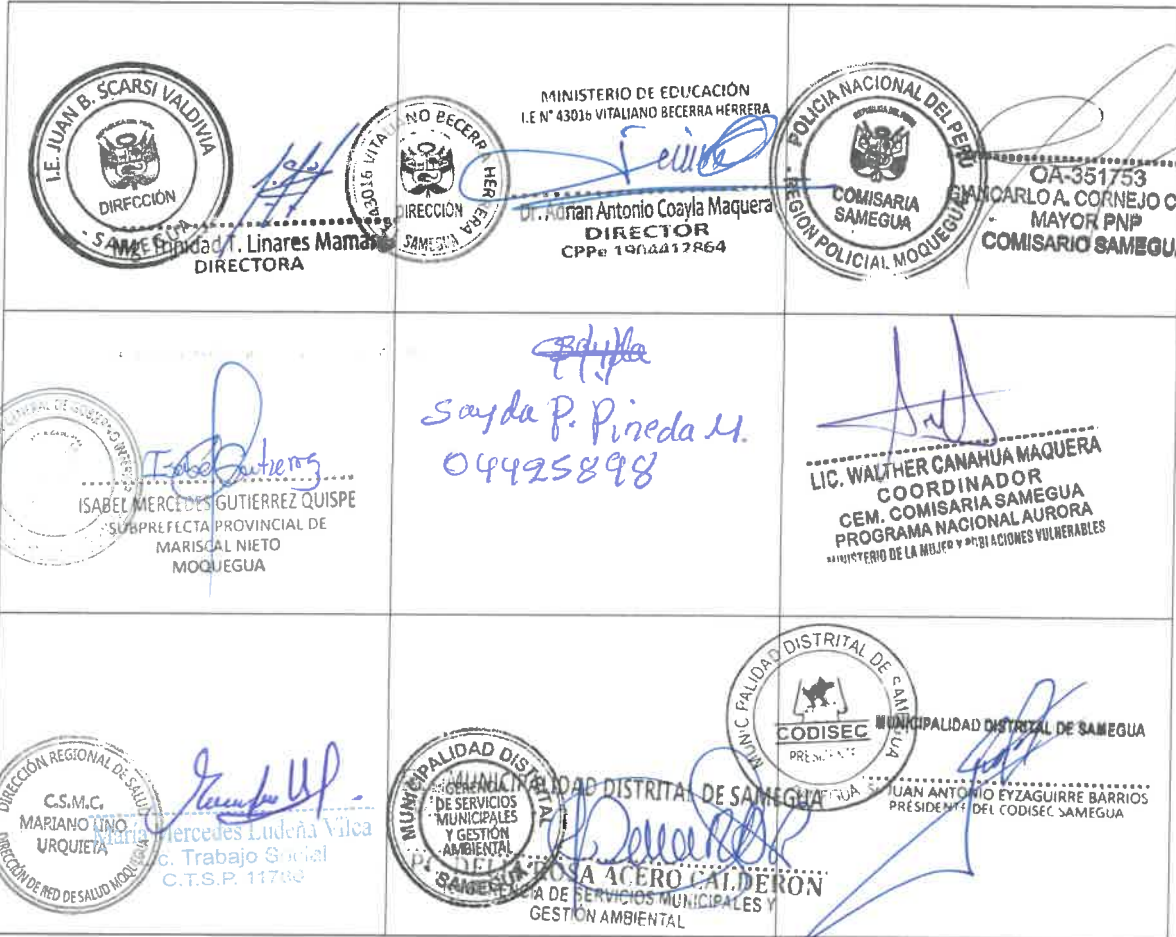 I.E. JUAN B. SCARSI VALDIVIA
DIRECCIÓN
SAMEGUA
Trinidad T. Linares Maman
DIRECTORA
43016 VITALIANO BECERRA HERRERA
DIRECCIÓN
SAMEGUA
MINISTERIO DE EDUCACIÓN
I.E N° 43016 VITALIANO BECERRA HERRERA
Dr. Adrian Antonio Coayla Maquera
DIRECTOR
CPPe
POLICIA NACIONAL DEL PERÚ
COMISARIA
SAMEGUA
REGIÓN POLICIAL MOQUEGUA
OA-351753
GIANCARLO A. CORNEJO C
MAYOR PNP
COMISARIO SAMEGUA
GENERAL DE GOBIERNO INTERIOR
Isabel Gutierrez
ISABEL MERCEDES GUTIERREZ QUISPE
SUBPREFECTA PROVINCIAL DE
MARISCAL NIETO
MOQUEGUA
Sayda P. Pineda M.
04425898
LIC. WALTHER CANAHUA MAQUERA
COORDINADOR
CEM. COMISARIA SAMEGUA
PROGRAMA NACIONAL AURORA
MINISTERIO DE LA MUJER Y POBLACIONES VULNERABLES
DIRECCIÓN REGIONAL DE SALUD
C.S.M.C.
MARIANO LINO
URQUIETA
DIRECCIÓN DE RED DE SALUD MOQUEGUA
Maria Mercedes Ludeña Vilca
Lic. Trabajo Social
C.T.S.P.
MUNICIPALIDAD DISTRITAL
GERENCIA
DE SERVICIOS
MUNICIPALES
Y GESTIÓN
AMBIENTAL
SAMEGUA
MUNICIPALIDAD DISTRITAL DE SAMEGUA
ROSA ACERO CALDERON
GERENCIA DE SERVICIOS MUNICIPALES Y
GESTIÓN AMBIENTAL
MUNICIPALIDAD DISTRITAL DE SAMEGUA
CODISEC
PRESIDENTE
MUNICIPALIDAD DISTRITAL DE SAMEGUA
JUAN ANTONIO EYZAGUIRRE BARRIOS
PRESIDENTE DEL CODISEC SAMEGUA